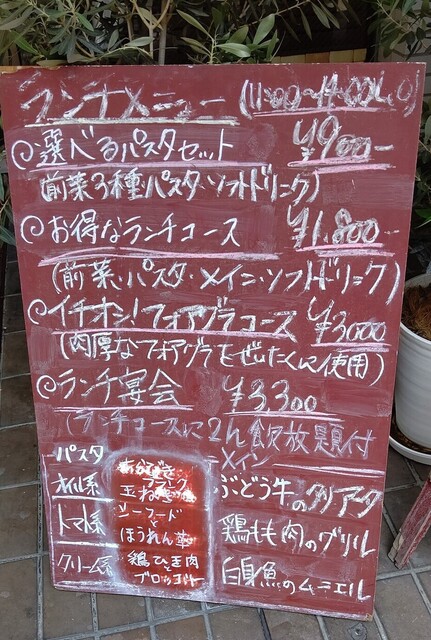 ランチメニュー (11:00〜14:00L.O)
◎選べるパスタセット ¥900-
(前菜3種・パスタ・ソフトドリンク)
◎お得なランチコース ¥1,800-
(前菜・パスタ・メイン・ソフトドリンク)
◎イチオシ!フォアグラコース ¥3000
(肉厚なフォアグラをぜいたくに使用)
◎ランチ宴会 ¥3300
(ランチコースに2h飲放題付
パスタ
オイル系 あらびき
玉ねぎ
トマト系 シーフード
と
ほうれん草
クリーム系 鶏ひき肉
ブロッコリー
メイン
ぶどう牛のタリアータ
鶏もも肉のグリル
白身魚のムニエル